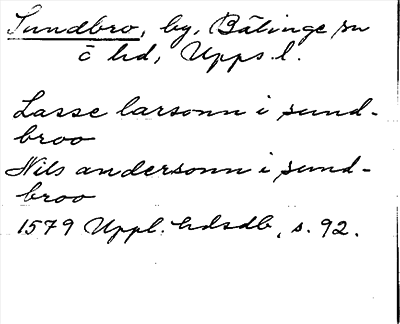 Sundbro, by, Bälinge sn
o hd, Upps l.
Lasse larsonn i sund-
broo
Nils andersonn i sund-
broo
1579 Uppl. hdsdb, s. 92.